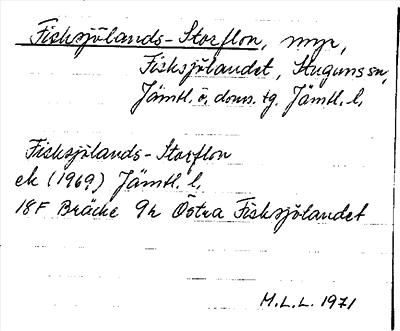 Fisksjölands-Storflon, myr,
Fisksjölandet, Stuguns sn,
Jämtl. ö. doms. tg. Jämtl. l.
Fisksjölands-Storflon
ek (1969) Jämtl. l.
18F Bräcke 9h Östra Fisksjölandet
M.L.L. 1971